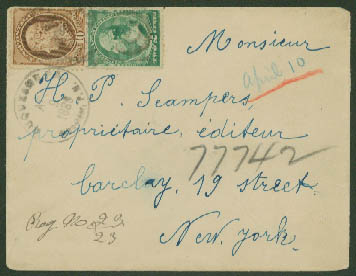 Monsieur
April 10
H. P. Scampers,
propriétaire, éditeur
77742
barclay, 19 street.
New. york.
Reg No 29
23